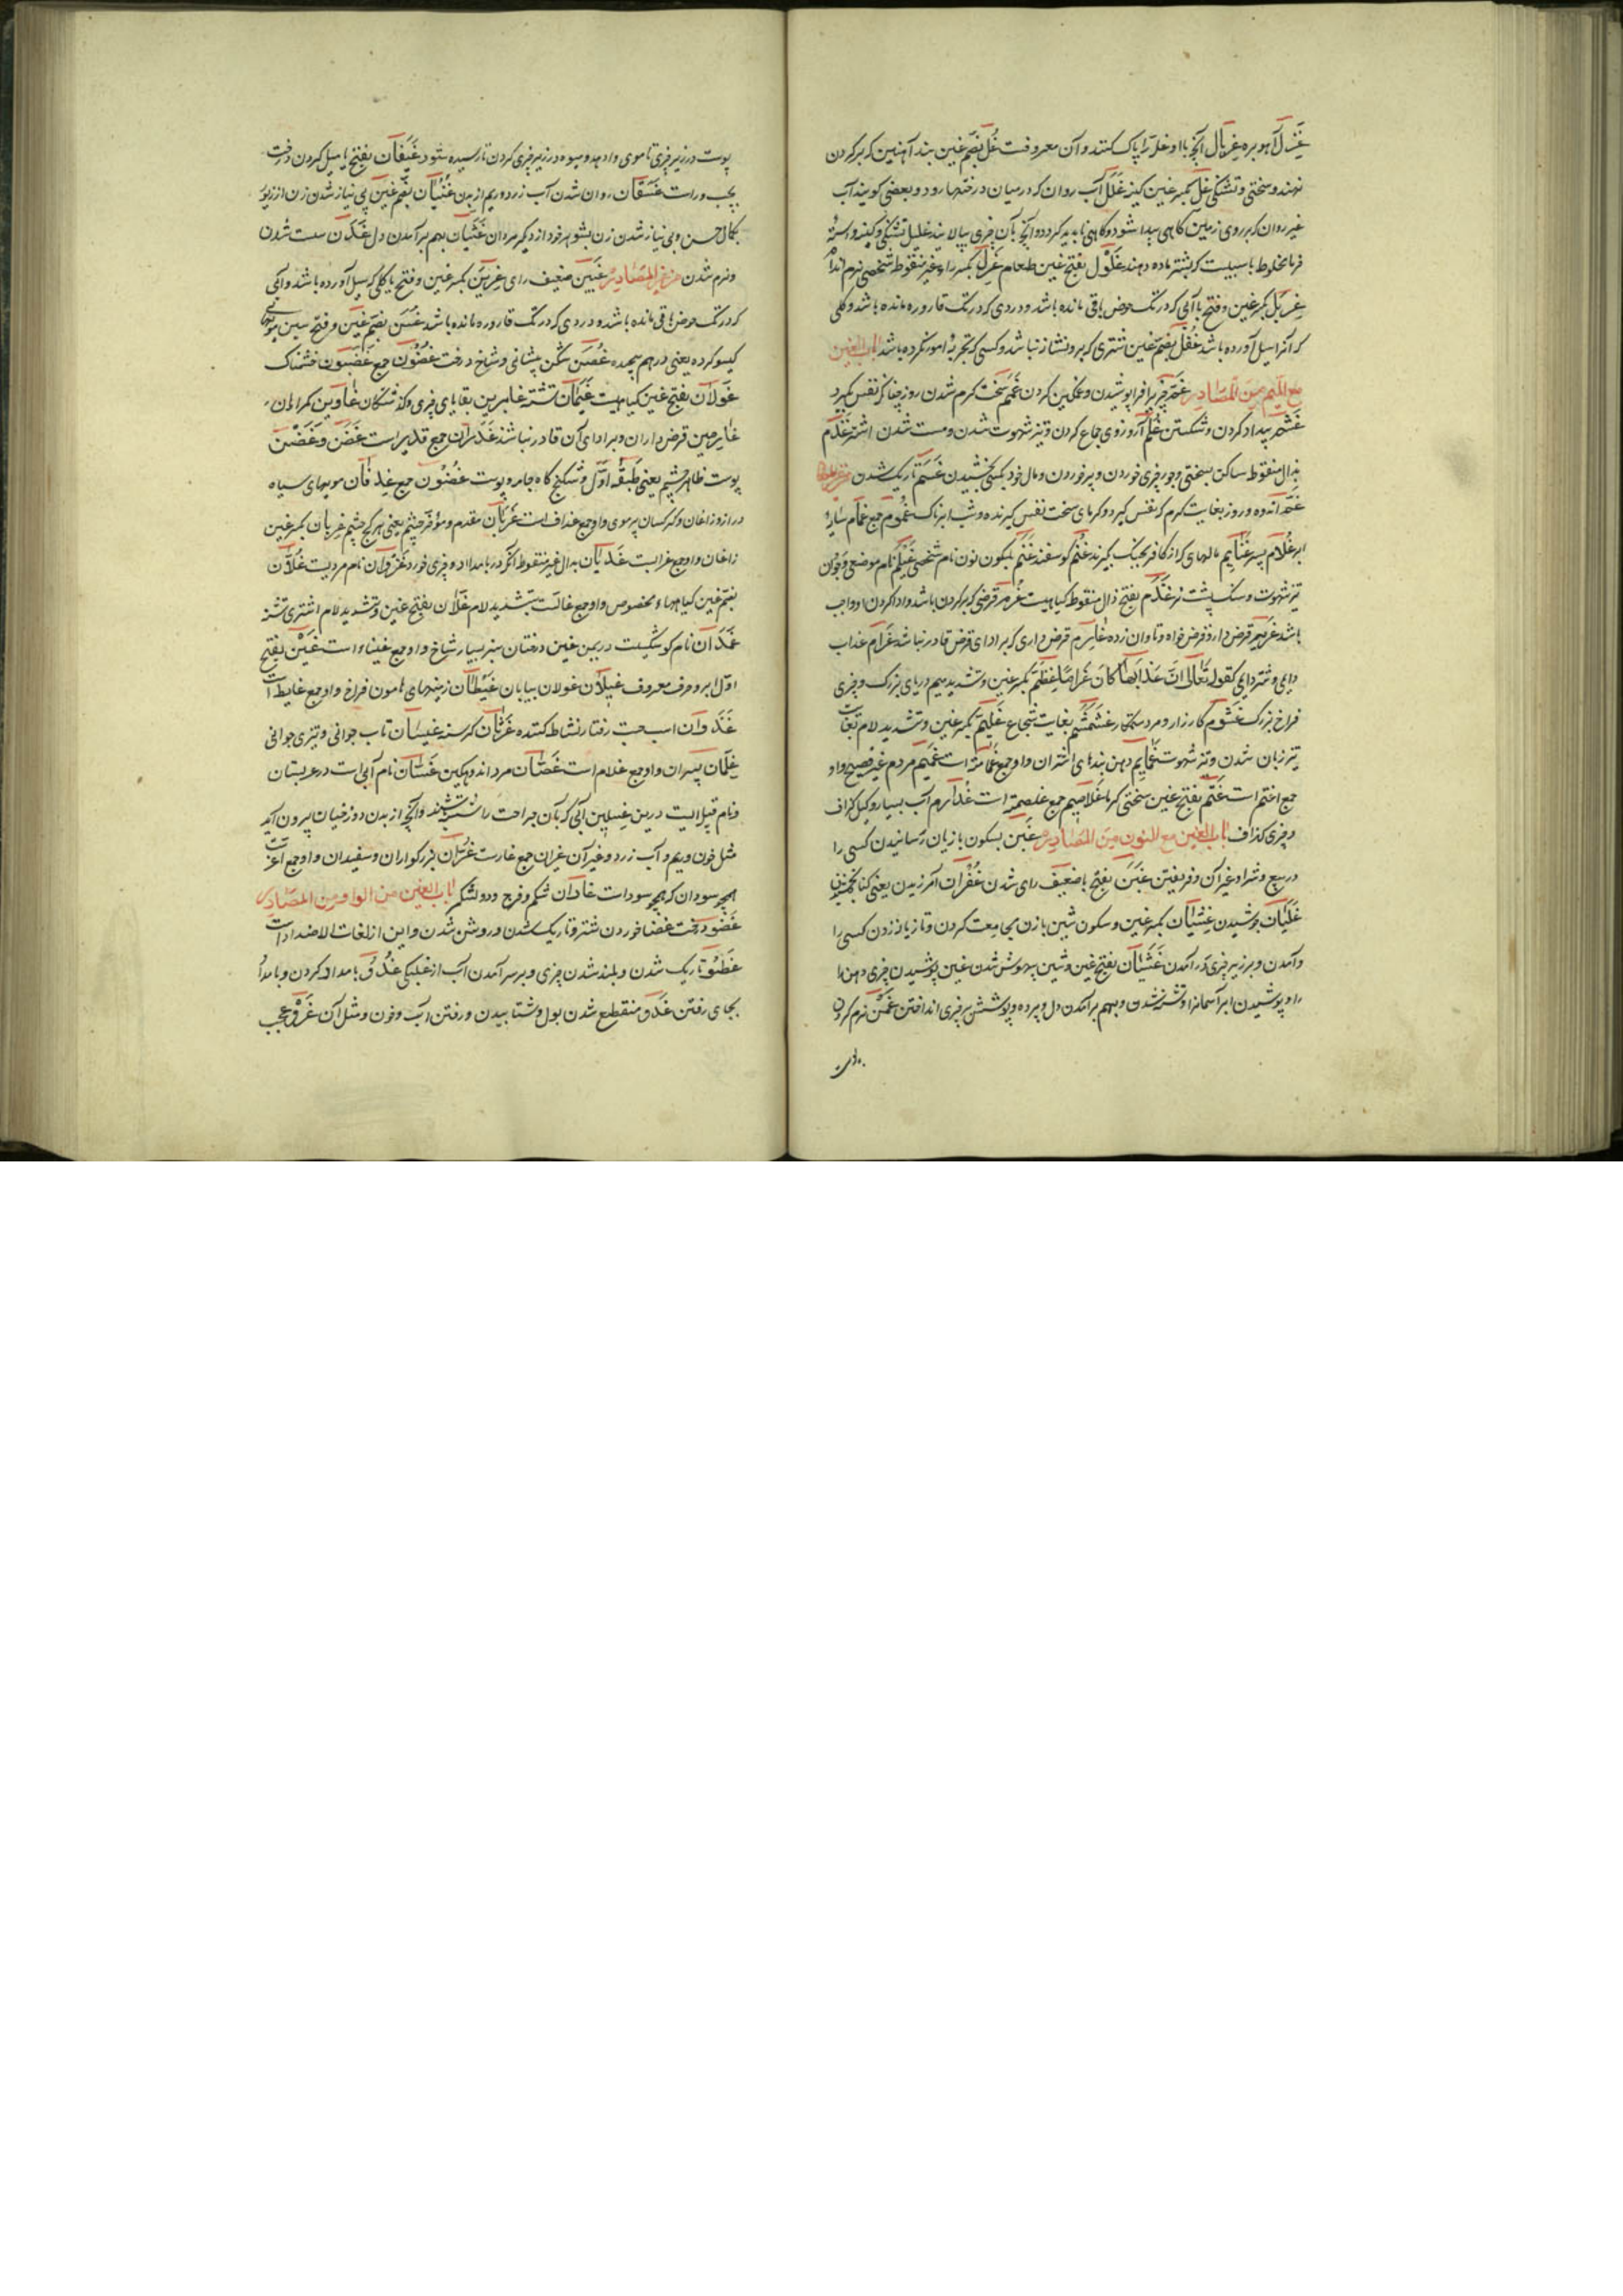 غَزَل آهو بره غِربال آنچه با او غله را پاک کنند و آن معروفست غُلّ بضم غین بند آهنین که بر گردن
نهند و سختی و تشنگی غِلّ بکسر غین کینه غَلَل آب روان که در میان درختها رود و بعضی گویند آب
غیر روان که بر روی زمین گاهی پیدا شود و گاهی ناپدید گردد و آنچه بآن چیزی بپالایند غلیل تشنگی و کینه و استهٔ
خرما مخلوط با سبیست که بشتر ماده دهند غَلول بفتح غین طعام غَزِل بکسر راء غیر منقوط شخصی نرم اندام
غِریَل بکسر غین و فتح یا آبی که در تک حوض باقی مانده باشد و دردی که در تک قاروره مانده باشد و گلی
که آنرا سیل آورده باشد غُفل بضم غین شتری که برو نشان نباشد و کسی که تجربهٔ امور نکرده باشد باب الغین
مع المیم من المصادر غَمّ چیزیرا فرا پوشیدن و غمگین کردن غَمَم سخت گرم شدن روز چنانکه نفس گیرد
غَشم بیداد کردن و شکستن غُلم آرزوی جماع کردن و تیز شهوت شدن و مست شدن اشتر غَذم
بذال منقوط ساکن بسختی و جور چیزی خوردن و بر خوردن و مال خود بکسی بخشیدن غَسَم تاریک شدن
غَمّ اندوه و روز بغایت گرم که نفس گیرد و گرمای سخت نفس گیرنده و شب ابرناک غُموم جمع غَمام سایهٔ
ابر غُلام پسر غَنایم مالهای که از کافر بجنگ گیرند غَنَم گوسفند غَنم بسکون نون نام شخصی غَیلم نام موضعی و جوان
تیز شهوت و سنگ پشت نر غَذَم بفتح ذال منقوط گیاهیست غُرم قرضی که بر گردن باشد و ادا کردن او واجب
باشد غَریم قرض دار و قرض خواه و تاوان زده غارِم قرض داری که بر ادای قرض قادر نباشد غَرام عذاب
دایم و شر دایم کقوله تعالی اِنَّ عَذابَها کانَ غَراماً غِطَمّ بکسر غین و تشدید میم دریای بزرگ و چیزی
فراخ بزرگ غَشوم کارزار و مرد ستمکار غَشَمشَم بغایت شجاع غِلّیم بکسر غین و تشدید لام بغایت
تیز زبان شدن و تیز شهوت غَمایم دهن بندهای اشتران و او جمع غمامة است غُتم مردم غیر فصیح و او
جمع اغتم است غَتم بفتح غین سختی گرما غَلاصِم جمع غلصمة است غُذارِم آب بسیار و کیل گزاف
و چیزی گزاف باب الغین مع النون من المصادر غَبن بسکون با زیان رسانیدن کسی را
در بیع و شرا و غیر آن و فریفتن غَبَن بفتح با ضعیف رای شدن غُفران آمرزیدن یعنی گناه بخشیدن
غَلَیان جوشیدن غِشیان بکسر غین و سکون شین با زن مجامعت کردن و تازیانه زدن کسی را
و آمدن و بر زبر چیزی در آمدن غَشَیان بفتح غین و شین بیهوش شدن غین پوشیدن چیزی دهن را
و پوشیدن ابر آسمانرا و تشنه شدن و بهم بر آمدن دل و پرده و پوشش بر چیزی انداختن غَمن نرم کردن
پوست
پوست در زیر چیزی تا موی وا دهد و میوه در زیر چیزی کردن تا رسیده شود غَیَفان بفتح یا میل کردن درخت
بچپ و راست غَسَقان روان شدن آب زرد و ریم از بدن غُنیان بضم غین بی نیاز شدن زن از زیور
بکمال حسن و بی نیاز شدن زن بشوهر خود از دیگر مردان غَثَیان بهم بر آمدن دل غَدَن سست شدن
و نرم شدن من غیر المصادر غَبین ضعیف رای غِریَن بکسر غین و فتح یا گلی که سیل آورده باشد و آبی
که در تک حوض باقی مانده باشد و دردی که در تک قاروره مانده باشد غُسَن بضم غین و فتح سین مویهای
گیسو کرده یعنی در هم پیچیده غُصن شکن پیشانی و شاخ درخت غُصون جمع غَضبون خشمناک
غَولان بفتح غین گیاهیست غَیمان تشنه غابرین بقایای چیزی و گذشتگان غاوین گمراهان
غارمین قرض داران و بر ادای آن قادر نباشند غُدران جمع غدیر است غَضن و غَضَن
پوست ظاهر چشم یعنی طبقهٔ اول و شکنج گاه جامه و پوست غُضون جمع غِدفان مویهای سیاه
دراز و زاغان و کرکسان پر موی و او جمع غداف است غَربان مقدم و مؤخر چشم یعنی هر کنج چشم غِربان بکسر غین
زاغان و او جمع غرابست غَدیان بدال غیر منقوط آنکه در بامداد و چیزی خورد غَزوان نام مردیست غُلّان
بضم غین گیاهها مخصوص و او جمع غالست بتشدید لام غَلّان بفتح غین و تشدید لام اشتری تشنه
غُمدان نام کوشکیست در یمن غین درختان سبز بسیار شاخ و او جمع غیناء است غَین بفتح
اول ابر و حرف معروف غیلان غولان بیابان غیطان زمینهای هامون فراخ و او جمع غایط است
غَذَوان اسب جست رفتار نشاط کننده غَرثان گرسنه غیسان تاب جوانی و تیزی جوانی
غِلمان پسران و او جمع غلام است غَصّان مرد اندوهگین غَسّان نام آبی است در عربستان
و نام قبیله‌ایست در یمن غِسلین آبی که بآن جراحت را شسته باشند و آنچه از بدن دوزخیان بیرون آید
مثل خون و ریم و آب زرد و غیر آن غیران جمع غارست غُرّان بزرگواران و سفیدان و او جمع اغرّ است
همچو سودان که جمع سود است غاران شکم و فرج و دو لشکر باب الغین مع الواو من المصادر
غَضو درخت غضا خوردن شتر و تاریک شدن و روشن شدن و این از لغات الاضداد است
غَطو تاریک شدن و بلند شدن چیزی و بر سر آمدن آب از غلبگی غُدُوّ بامداد کردن و بامداد
بجای رفتن غَذو منقطع شدن بول و شتابیدن و رفتن آب و خون و مثل آن غَرو عجب